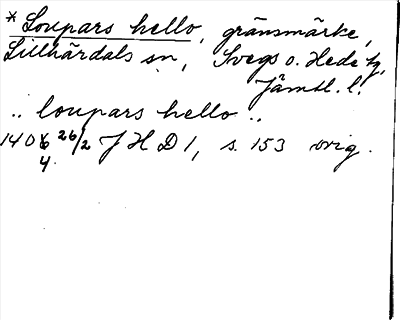 * Loupars hello, gränsmärke,
Lillhärdals sn, Svegs o. Hede tg,
Jämtl. l.
.. loupars hello ..
1406 26/2 J H D 1, s. 153 orig.
4.